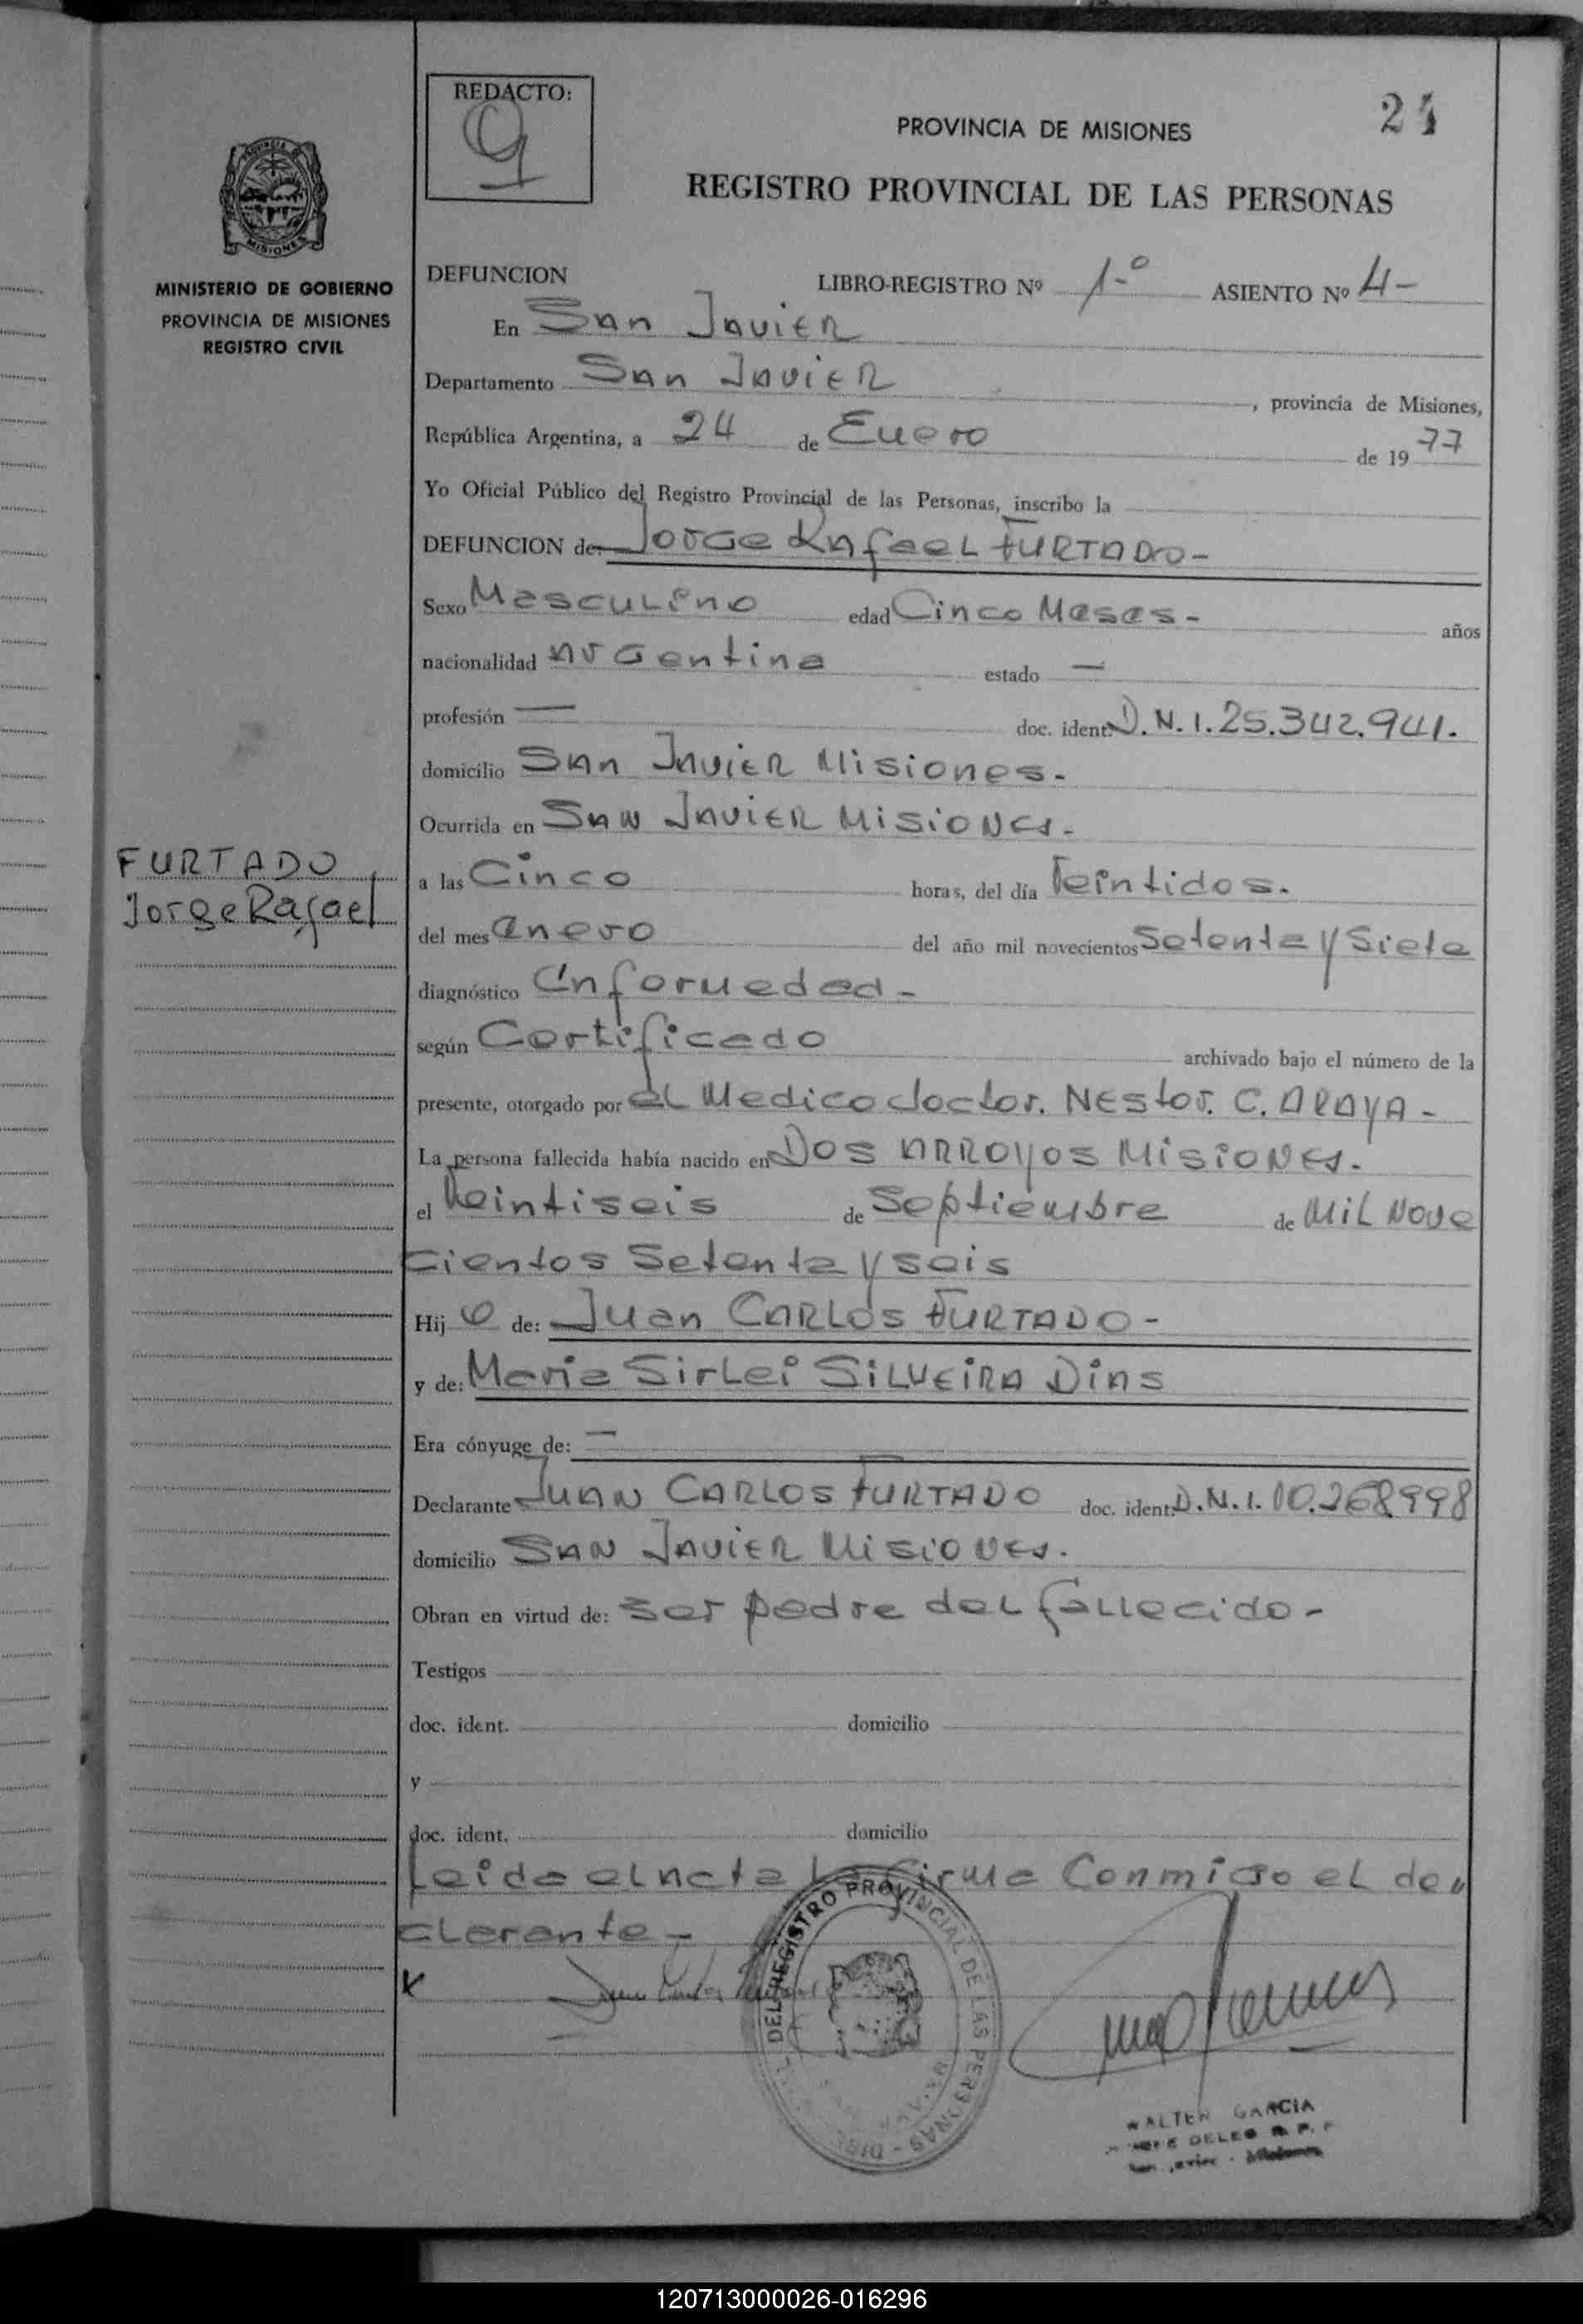 REDACTO:
PROVINCIA DE MISIONES
REGISTRO PROVINCIAL DE LAS PERSONAS
MISIONES
MINISTERIO DE GOBIERNO
PROVINCIA DE MISIONES
REGISTRO CIVIL
DEFUNCION LIBRO-REGISTRO Nº 1-º ASIENTO Nº 4-
En San Javier
Departamento San Javier, provincia de Misiones,
República Argentina, a 24 de Enero de 1977
Yo Oficial Público del Registro Provincial de las Personas, inscribo la
DEFUNCION de: Jorge Rafael FURTADO-
Sexo Masculino edad Cinco Meses- años
nacionalidad Argentina estado —
profesión — doc. ident. D.N.I. 25.342.941.
domicilio San Javier Misiones.
Ocurrida en San Javier Misiones.
FURTADO
Jorge Rafael
a las Cinco horas, del día Veintidos.
del mes Enero del año mil novecientos Setenta y Siete
diagnóstico Enfermedad-
según Certificado archivado bajo el número de la
presente, otorgado por el Medico doctor. Nestor. C. ARAYA-
La persona fallecida había nacido en Dos Arroyos Misiones.
el Veintiseis de Septiembre de Mil Nove
cientos Setenta y seis
Hijo de: Juan Carlos FURTADO-
y de: Maria Sirlei SILVEIRA Dias
Era cónyuge de: —
Declarante Juan Carlos FURTADO doc. ident. D.N.I. 10.268998
domicilio San Javier Misiones.
Obran en virtud de: ser padre del fallecido-
Testigos
doc. ident. domicilio
y
doc. ident. domicilio
Leida el acta la firma Conmigo el de"
clarante-
DEL REGISTRO PROVINCIAL DE LAS PERSONAS
WALTER GARCIA
120713000026-016296